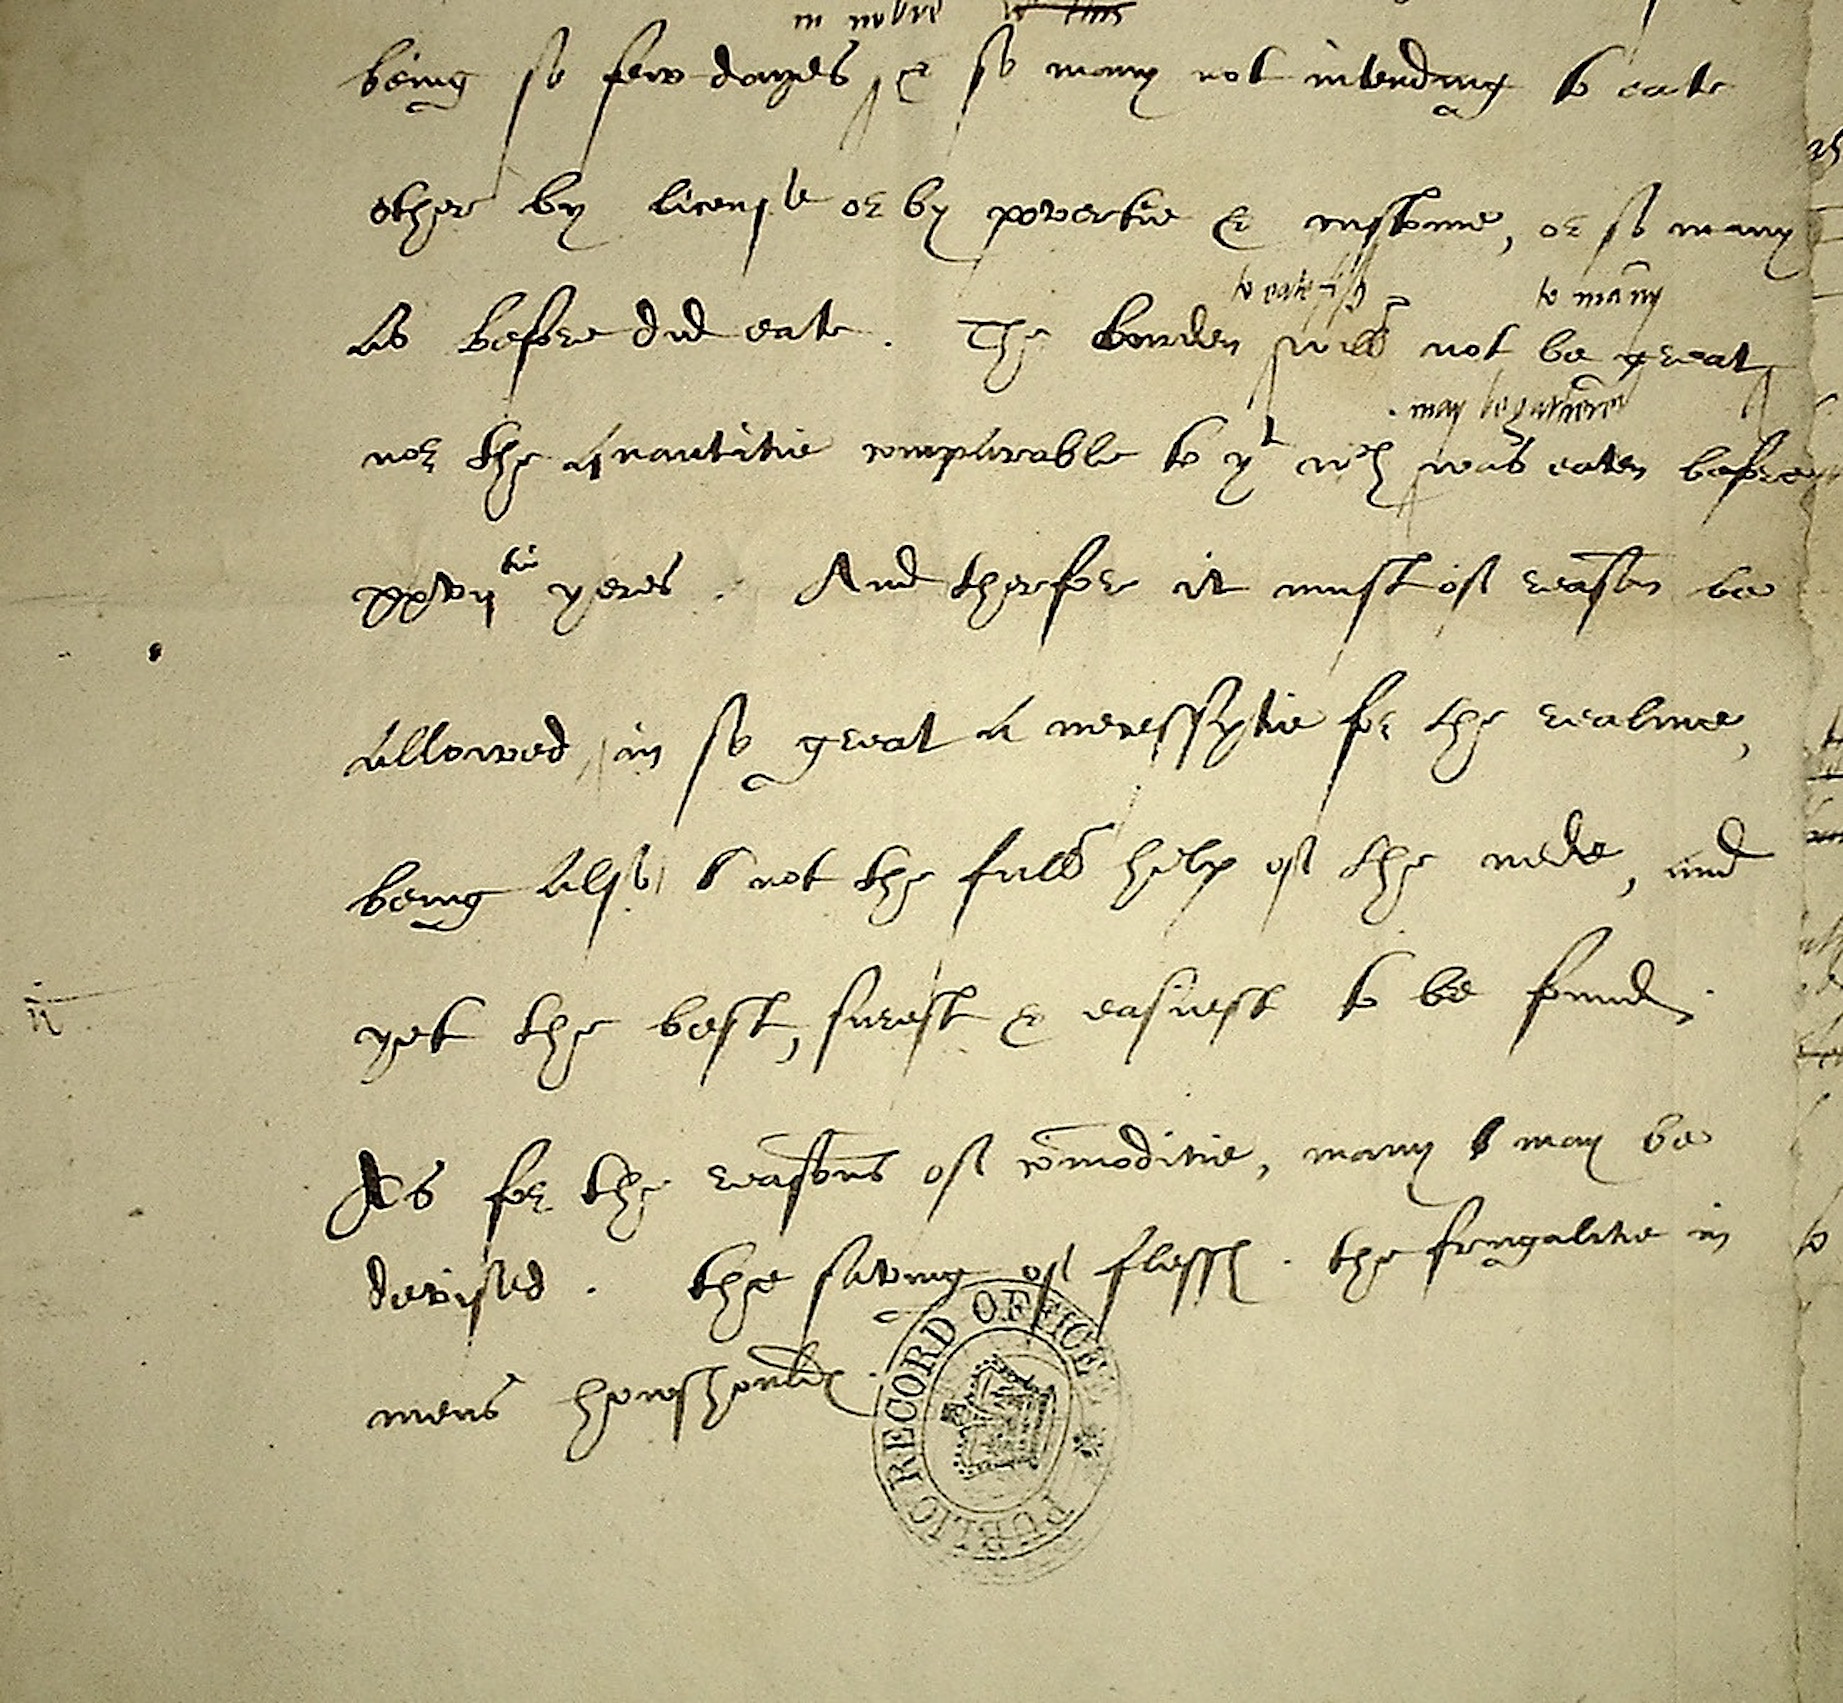 in nobre
being so few dayes, & so many not intending to eate
other by license or by povertie & custome, or so many
to eate fish to many
as before did eate. The burden will not be great,
may be gathered
nor the quantitie comparable to yt wch was eaten before
xxvij tie yeres. And therfore it must of reason be
allowed, in so great a necessytie for the realme,
being also not the full help of the nede, and
yet the best, surest & easiest to be found.
As for the reasons of comoditie, many may be
devised. the saving of flessh. the frugalitie in
mens howshould
PUBLIC RECORD OFFICE